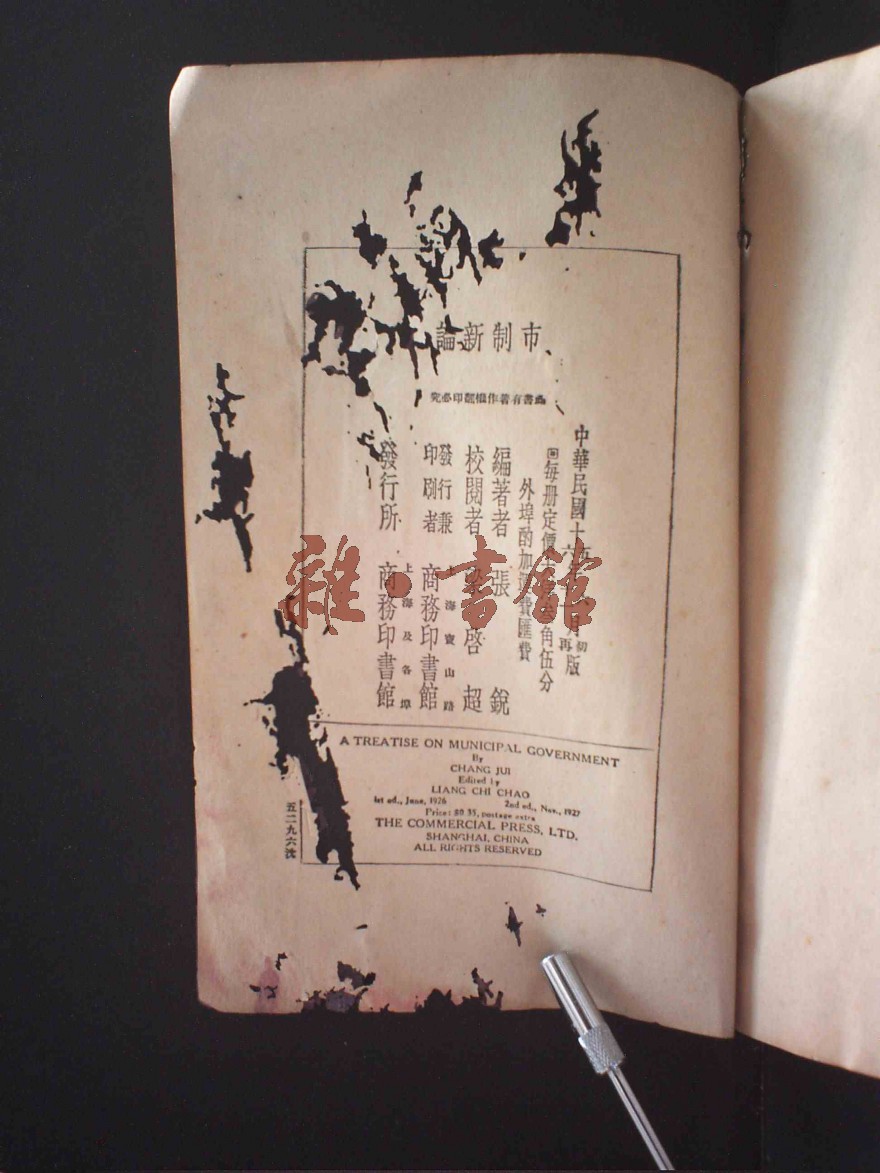 市制新論
書有著作權翻印必究
中華民國十五年六月初版
六 再
每册定價大洋叁角伍分
外埠酌加運費匯費
編著者 張銳
校閱者 梁啓超
發行兼印刷者 上海寶山路 商務印書館
發行所 上海及各埠 商務印書館
A TREATISE ON MUNICIPAL GOVERNMENT
By
CHANG JUI
Edited by
LIANG CHI CHAO
1st ed., June, 1926 2nd ed., Nov., 1927
Price: $0.35, postage extra
THE COMMERCIAL PRESS, LTD.
SHANGHAI, CHINA
ALL RIGHTS RESERVED
五二九六沈
雜·書館